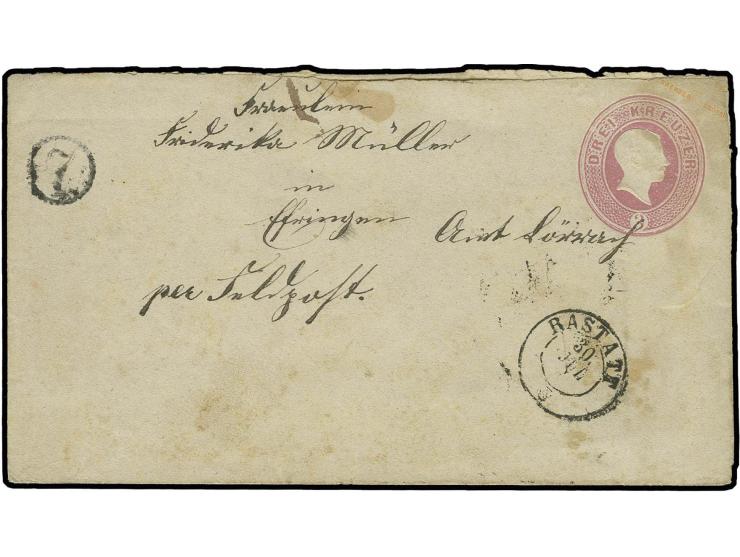 Fraeulein
Friderika Müller
in
Efringen Amt Lörrach
per Feldpost.
7.
DREI KREUZER
3
RASTATT
30
JUL